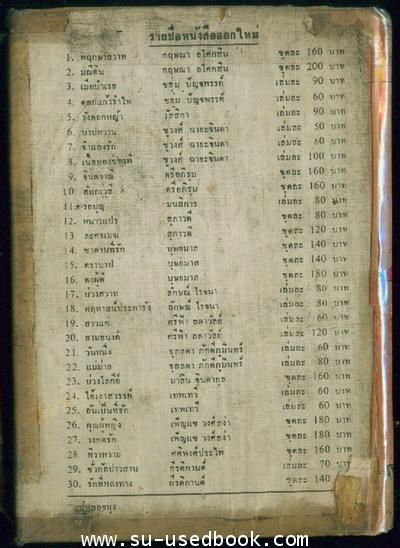 รายชื่อหนังสือออกใหม่
1. พฤกษาสวาท กฤษณา อโศกสิน ชุดละ 160 บาท
2. มณีดิน กฤษณา อโศกสิน ชุดละ 200 บาท
3. เมียบำเรอ ชอุ่ม ปัญจพรรค์ เล่มละ 90 บาท
4. ดอกแก้วรำไพ ชอุ่ม ปัญจพรรค์ เล่มละ 60 บาท
5. วังดอกหญ้า วัสสิกา เล่มละ 90 บาท
6. บาปหวาน ชูวงศ์ ฉายะจินดา เล่มละ 50 บาท
7. จำเลยรัก ชูวงศ์ ฉายะจินดา เล่มละ 60 บาท
8. เนื้อทองของพี่ ชูวงศ์ ฉายะจินดา เล่มละ 100 บาท
9. จินตวาณี ตรีอภิรุม ชุดละ 160 บาท
10. ตรีอภิรุม ชุดละ 160 บาท
11. รอบุญ มนสิการ เล่มละ 80 บาท
12. หนาวแปร สุภาวดี เล่มละ 80 บาท
13. ละครเมฆ สุภาวดี ชุดละ 120 บาท
14. ซาตานที่รัก บุษยมาส ชุดละ 140 บาท
15. ตราบาป บุษยมาส ชุดละ 140 บาท
16. ดงผู้ดี บุษยมาส ชุดละ 180 บาท
17. บ่วงสวาท ลักษณ์ โรจนา เล่มละ 80 บาท
18. คฤหาสน์ประการัง ลักษณ์ โรจนา เล่มละ 80 บาท
19. สาวแก่ ศรีฟ้า ลดาวัลย์ เล่มละ 60 บาท
20. สามอนงค์ ศรีฟ้า ลดาวัลย์ เล่มละ 120 บาท
21. วันหนึ่ง จุลลดา ภักดีภูมินทร์ เล่มละ 60 บาท
22. แม่ม่าย จุลลดา ภักดีภูมินทร์ เล่มละ 80 บาท
23. บ่วงโลกีย์ มาลิน จินดากุล ชุดละ 160 บาท
24. ใต้เงาสวรรค์ เทพเทวี เล่มละ 60 บาท
25. อันเป็นที่รัก เทพเทวี เล่มละ 60 บาท
26. คุณผู้หญิง เพ็ญแข วงศ์สง่า ชุดละ 180 บาท
27. วงศ์ตรัก เพ็ญแข วงศ์สง่า ชุดละ 180 บาท
28. ทิวาหวาม ศศิพงศ์ประไพ ชุดละ 160 บาท
29. ชั่วกัลปาวสาน กีรติกานต์ เล่มละ 70 บาท
30. รักที่หลงทาง กีรติกานต์ ชุดละ 140 บาท
www.su-usedbook.com